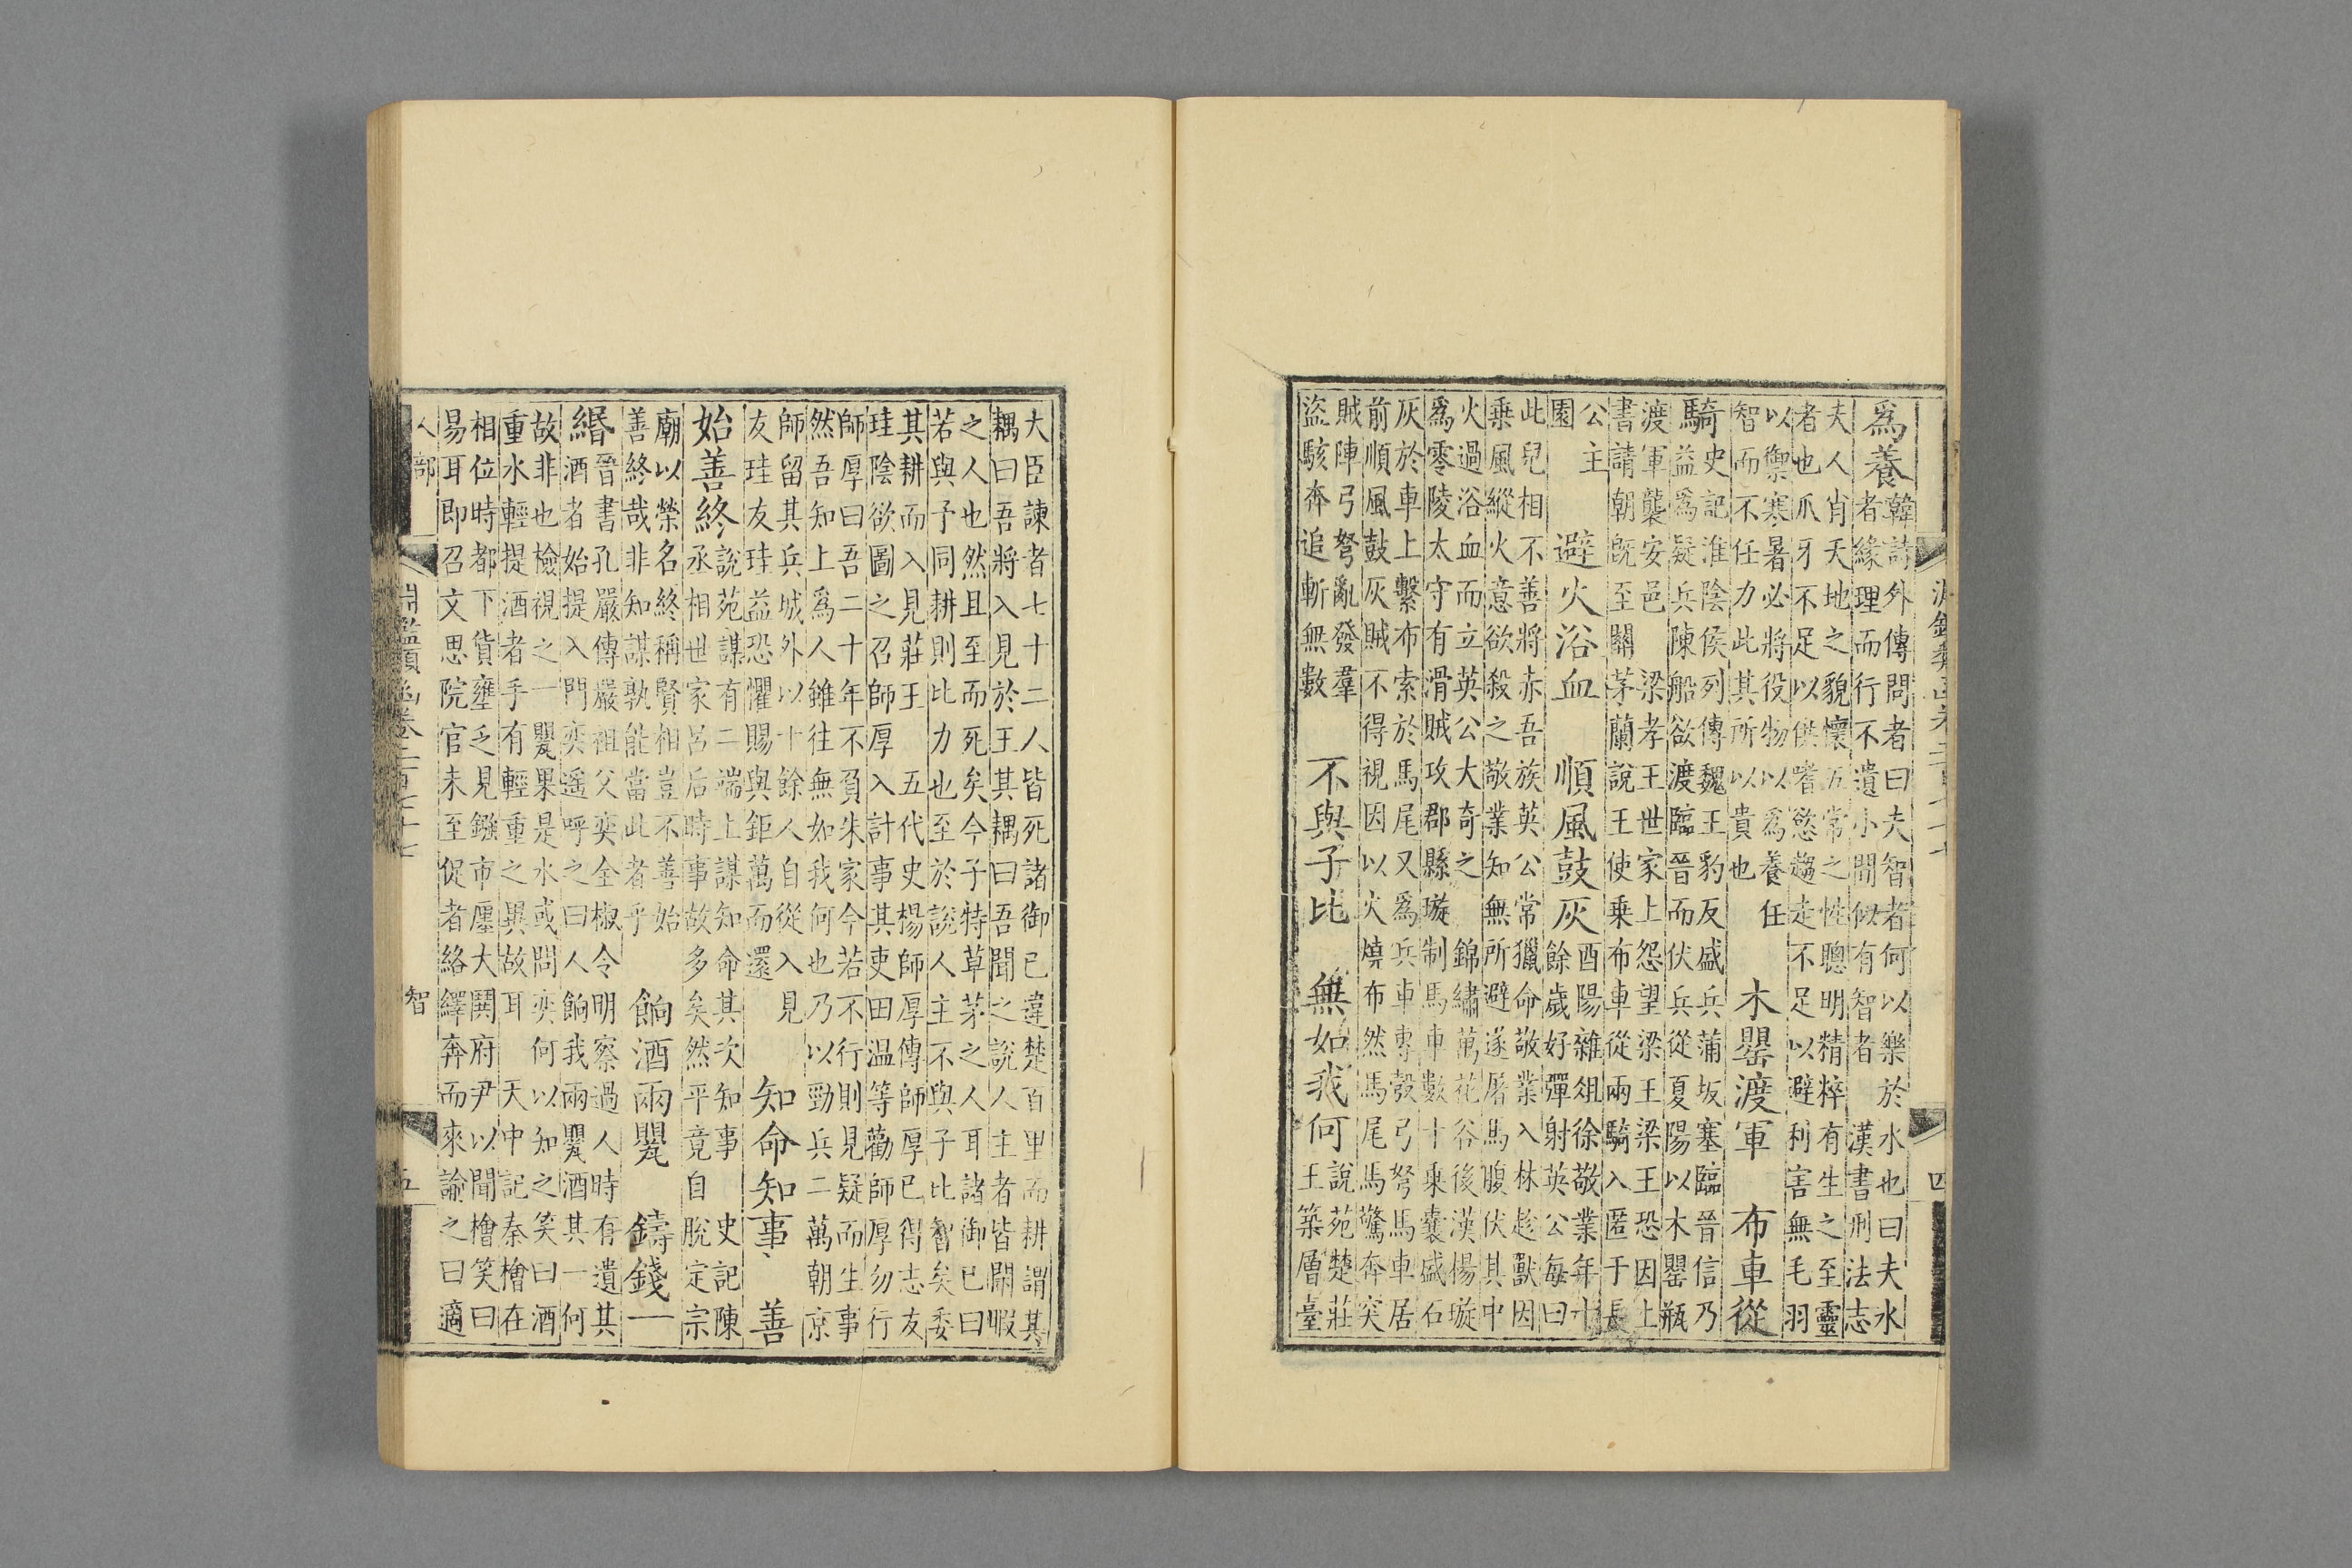 為養
韓詩外傳問者曰夫智者何以樂於水也曰夫水
者緣理而行不遺小間似有智者　漢書刑法志
夫人肖天地之貌懷五常之性聰明精粹有生之至靈
者也爪牙不足以供嗜慾趨走不足以避利害無毛羽
以禦寒暑必將役物以為養任
智而不任力此其所以貴也
木罌渡軍　布車從
騎
史記淮陰侯列傳魏王豹反盛兵蒲坂塞臨晉信乃
益為疑兵陳船欲渡臨晉而伏兵從夏陽以木罌瓶
渡軍襲安邑　梁孝王世家上怨望梁王梁王恐因上
書請朝旣至關茅蘭說王使乘布車從兩騎入匿于長
公主
園
避火浴血　順風鼓灰
酉陽雜俎徐敬業年十
餘歲好彈射英公每曰
此兒相不善將赤吾族英公常獵命敬業入林趁獸因
乘風縱火意欲殺之敬業知無所避遂屠馬腹伏其中
火過浴血而立英公大奇之　錦繡萬花谷後漢楊璇
為零陵太守有滑賊攻郡縣璇制馬車數十乘囊盛石
灰於車上繫布索於馬尾又為兵車專彀弓弩馬車居
前順風鼓灰賊不得視因以火燒布然馬尾馬驚奔突
賊陣弓弩亂發羣
盜駭奔追斬無數
不與子比　無如我何
說苑楚莊
王築層臺
大臣諫者七十二人皆死諸御已違楚百里而耕謂其
耦曰吾將入見於王其耦曰吾聞之說人主者皆閒暇
之人也然且至而死矣今子特草茅之人耳諸御已曰
若與予同耕則比力也至於說人主不與子比智矣委
其耕而入見莊王　五代史楊師厚傳師厚已得志友
珪陰欲圖之召師厚入計事其吏田温等勸師厚勿行
師厚曰吾二十年不負朱家今若不行則見疑而生事
然吾知上為人雖往無如我何也乃以勁兵二萬朝京
師留其兵城外以十餘人自從入見
友珪友珪益恐懼賜與鉅萬而還
知命知事　善
始善終
說苑謀有二端上謀知命其次知事　史記陳
丞相世家呂后時事故多矣然平竟自脫定宗
廟以榮名終稱賢相豈不善始
善終哉非知謀孰能當此者乎
餉酒兩甖　鑄錢一
緡
晉書孔嚴傳嚴祖父奕全椒令明察過人時有遺其
酒者始提入門奕遥呼之曰人餉我兩甖酒其一何
故非也檢視之一甖果是水或問奕何以知之笑曰酒
重水輕提酒者手有輕重之異故耳　天中記秦檜在
相位時都下貨壅乏見鏹市廛大鬨府尹以聞檜笑曰
易耳即召文思院官未至促者絡繹奔而來諭之曰適
人部　淵鑑類函卷二百七十七　智　五